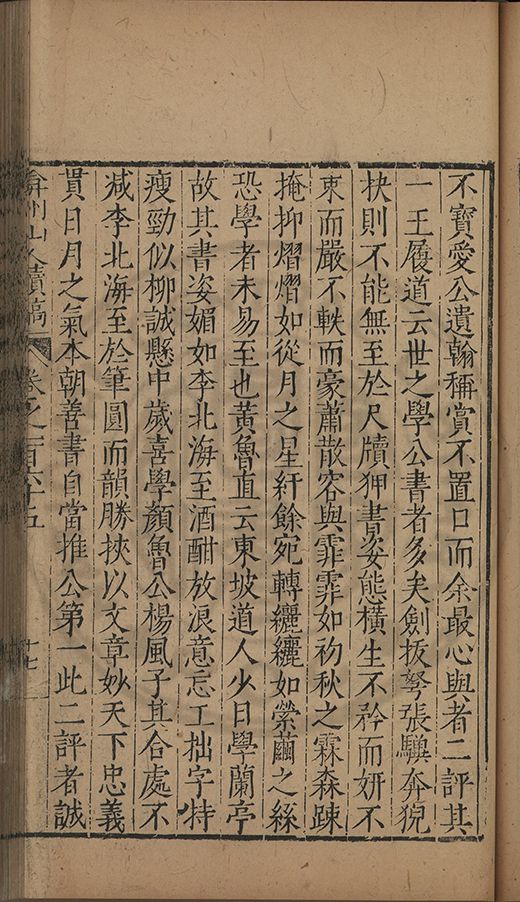 不寶愛公遺翰稱賞不置口而余最心與者二評其
一王履道云世之學公書者多矣劍拔弩張驥奔猊
抉則不能無至於尺牘狎書姿態橫生不矜而妍不
束而嚴不軼而豪蕭散容與霏霏如初秋之霖森踈
掩抑熠熠如從月之星紆餘宛轉纚纚如縈繭之絲
恐學者未易至也黃魯直云東坡道人少日學蘭亭
故其書姿媚如李北海至酒酣放浪意忘工拙字特
瘦勁似柳誠懸中歲喜學顏魯公楊風子其合處不
减李北海至於筆圓而韻勝挾以文章妙天下忠義
貫日月之氣本朝善書自當推公第一此二評者誠
弇州山人續稿 卷之一百六十五 十七